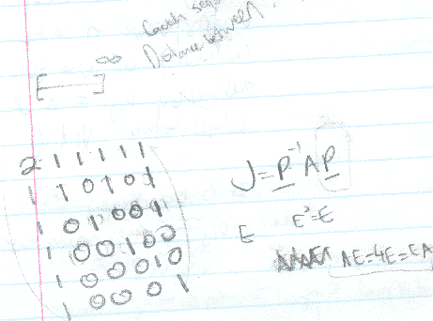 Distance between
∞
[ ]
2 1 1 1 1 1
1 1 0 1 0 1
1 0 1 0 0 1
1 0 0 1 0 0
1 0 0 0 1 0
1 0 0 0 1
J = P⁻¹AP
E E² = E
AE = 4E = EA